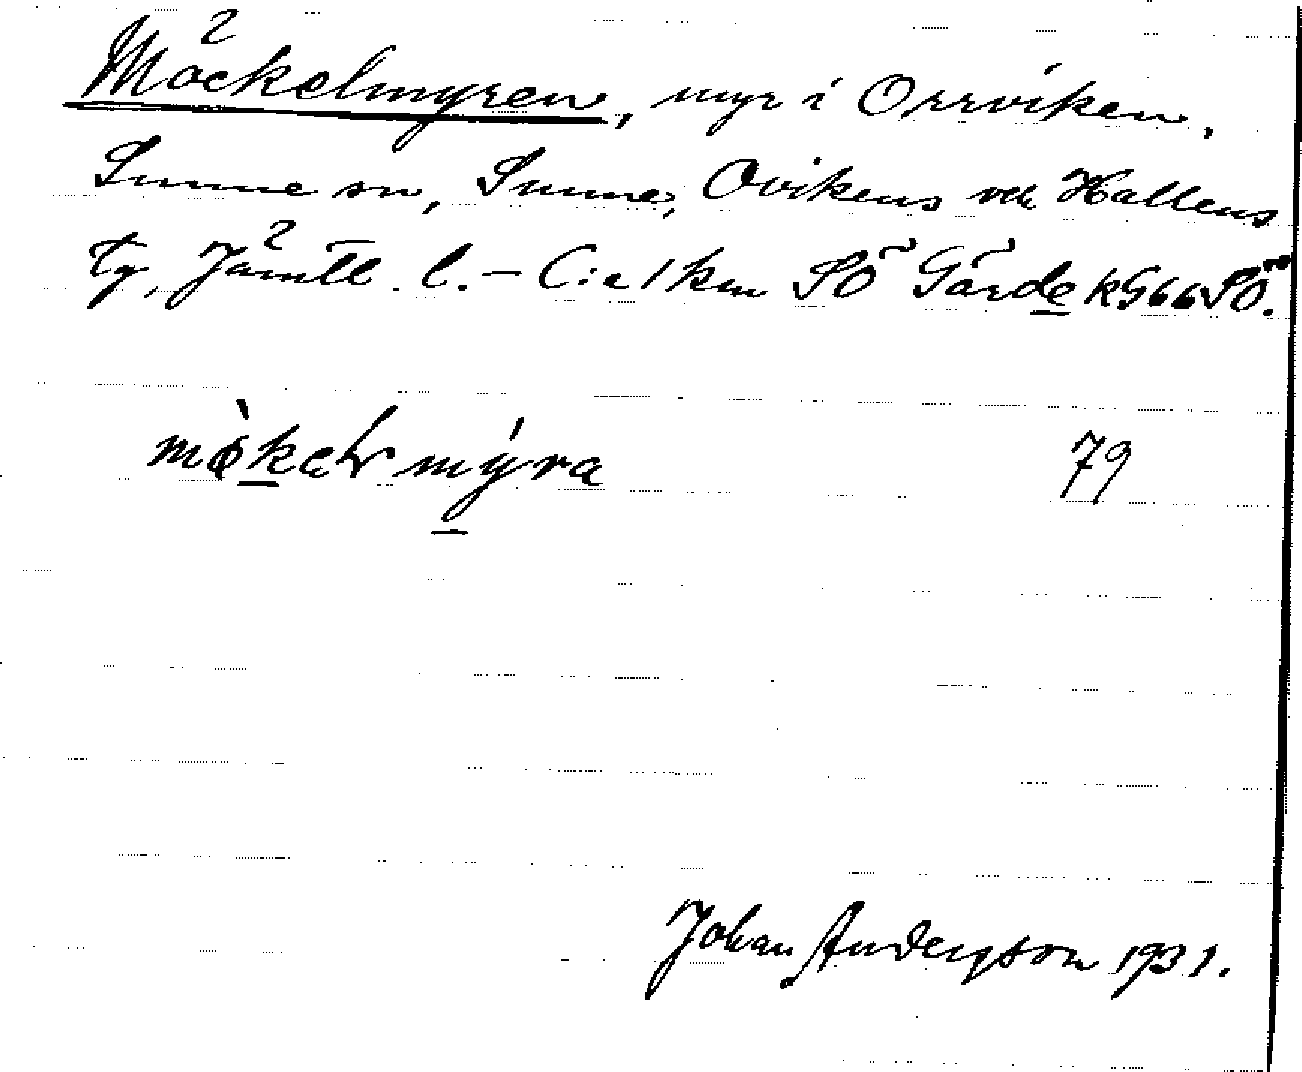 Möckelmyren, myr i Orrviken,
Sunne sn, Sunne, Ovikens och Hallens
tg, Jämtl. l. – C:a 1 km SÖ Gärde kG66SÖ.
mø̀kaɫ mýra 79
Johan Anderson 1931.